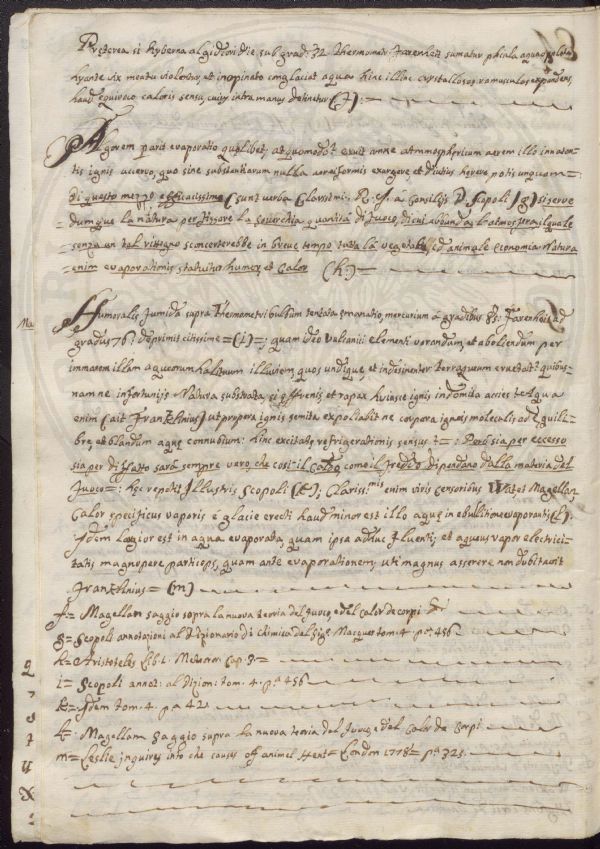 Præterea si hyberna algidiori die sub grad: 32 thermomet: Farenheit sumatur phiala aquæ plena
hyante vix meatu violenter, et inopinato conglaciat aqua hinc illinc crystallosos ramusculos expandens,
haud equivoco caloris sensu, cuius intra manus detinetur (f):=
Algorem parit evaporatio quælibet; at quomodo exuit anne atmosphæricum aerem illo innaton-
tis ignis acervo, quo sine substantiarum nulla aereiformis exurgere, et diutius herere potis unquam=
di questo mezzo efficacissimo (sunt verba Clarissimi R. I. A. à Consilijs D. Scopoli (g) si serve
=dumque la natura per tissore la soverchia quantità di fuoco, di cui abbonda l'atmosfera, il quale
senza un tal ritegno sconcerterebbe in breve tempo tutta la vegetab:, ed animale economia. Natura
=enim evaporationis statuitur humor, et Calor (h:)=
Humoralis fumida supra thermometri bulbum tentata emanatio, mercurium à gradibus 85: Farenheit ad
gradus 76? deprimit citissime =(i)=; quam ideo vulcanii elementi vorandum, et abolendum per
immanem illam aqueorum halituum illuviem, quos undique, et indesinenter terraqueum eructat? quibus-
nam ne infortunijs Natura substrata, si effrenis et rapax huiusce ignis indomita acries te Aqua
enim (ait Franklinius) ut propera ignis semita expoliabit ne corpora igneis moleculis ad equili-
bre, et blandum aquæ connubium: hinc excitatus refrigerationis sensus :=: Però sia per eccesso
sia per difatto sarà sempre vero, che così il Caldo, come il freddo dipendano dalla materia del
fuoco=: hęc repetit Illustris Scopoli (k); Clariss:mis enim viris censoribus Watos Magellan
Calor specificus vaporis è glacie erecti haud minor est illo aquæ in ebullitione evaporantis (l).
Idem largior est in aqua evaporata, quam ipsa adhuc fluenti; et aqueus vapor electrici-
tatis magnopere particeps, quam ante evaporationem, uti magnus asserere non dubitavit
Franklinius= (m)
f= Magellan saggio sopra la nuova teoria del fuoco, e del calor de corpi
g= Scopoli annotazioni al Dizionario di Chimica del Sigr Macquer tom. 4. pa. 456
h= Aristoteles Lib. 1. Meteoror. Cap. 9=
i= Scopoli annot: al Dizion: tom. 4. pa. 456
k= Idem tom. 4. pa 42
l= Magellam saggio supra la nuova teoria del fuoco, e del Calor de Corpi
m= Leslie inquires into che causes off animel Heat= London 1778= pa. 325.